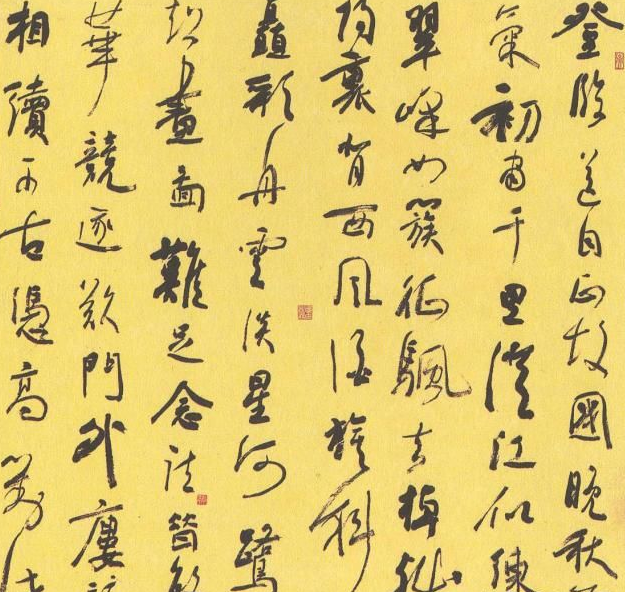 登臨送目正故國晚秋
氣初肅千里澄江似練
翠峰如簇征颿去棹
陽裏背西風酒旗斜
矗彩舟雲淡星河鷺
起畫圖難足念往昔
華競逐歎門外樓
相續千古憑高對此